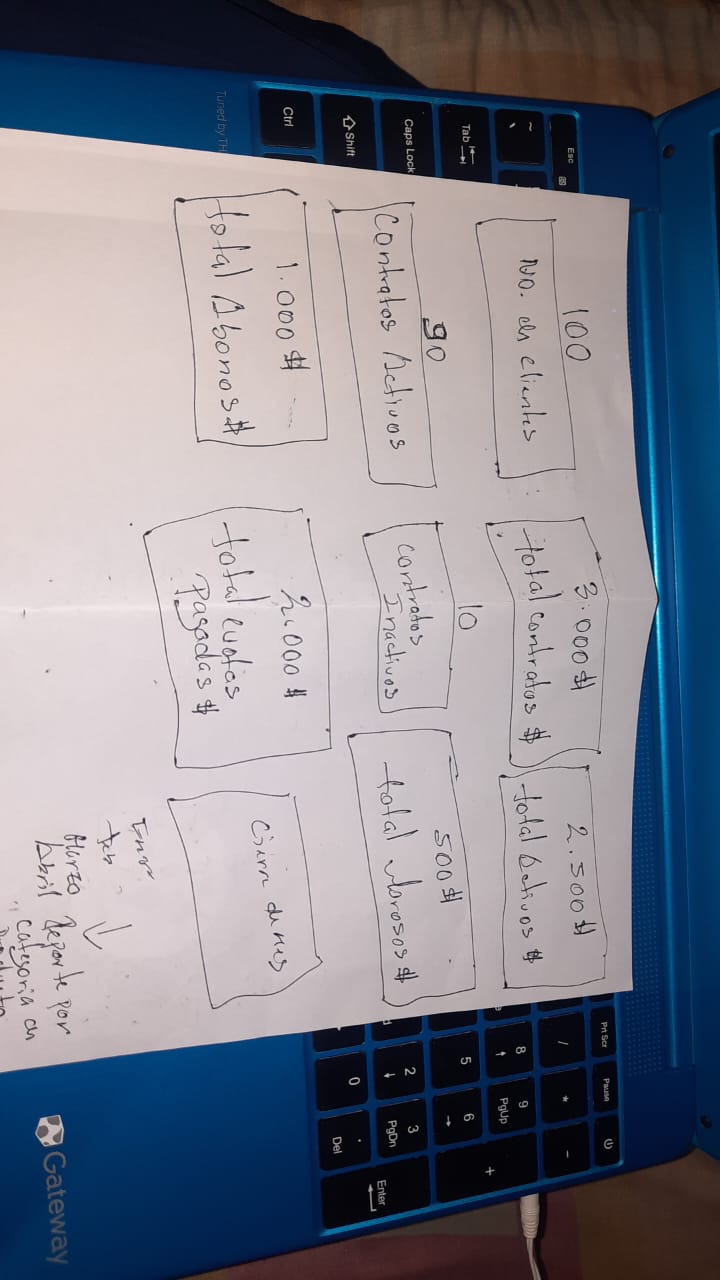 100
No. de clientes
3.000 $
total contratos $
2.500 $
total Activos $
90
Contratos Activos
10
Contratos
Inactivos
500 $
total Morosos $
1.000 $
total Abonos $
2.000 $
total cuotas
Pagadas $
Cierre de mes
Feb
Marzo
Abril
Reporte por
categoria de
Producto
Esc
~
Tab
Caps Lock
Shift
Ctrl
Tuned by TH
Prt Scr
Pause
/
*
-
8
9
PgUp
+
5
6
2
3
PgDn
Enter
0
.
Del
Gateway